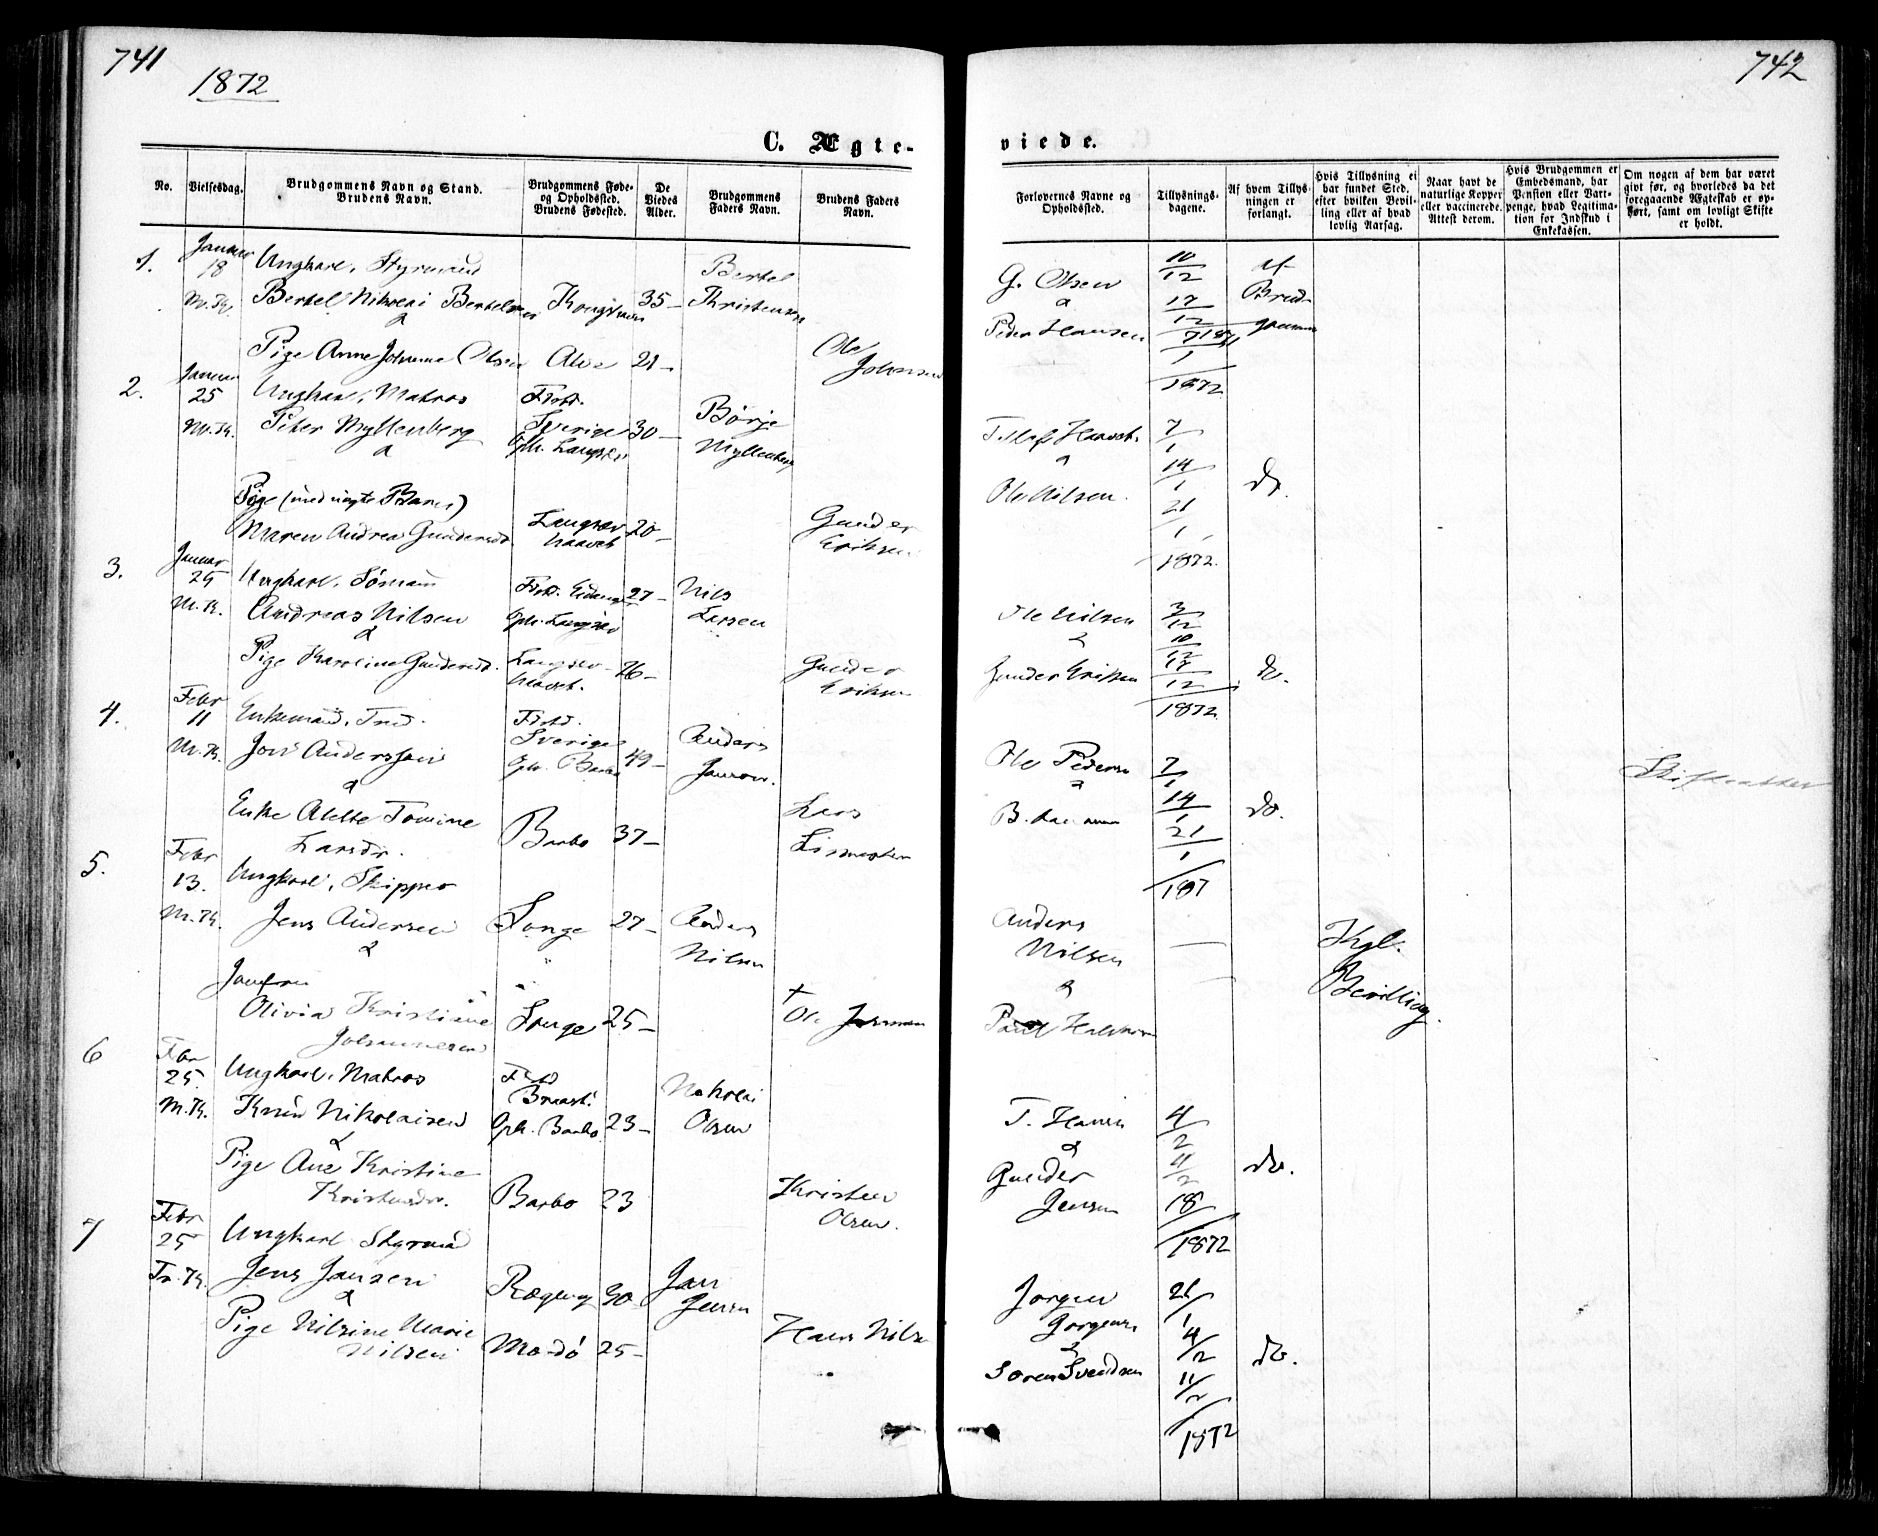 741
1872
742
C. Ægte-
viede.
No.
Vielsesdag.
Brudgommens Navn og Stand.
Brudens Navn.
Brudgommens Føde-
og Opholdssted.
Brudens Fødested.
De
Viedes
Alder.
Brudgommens
Faders Navn.
Brudens Faders
Navn.
Forlovernes Navne og
Opholdssted.
Tillysnings-
dagene.
Af hvem Tillys-
ningen er
forlangt.
Hvis Tillysning ei
har fundet Sted,
efter hvilken Bevil-
ling eller af hvad
lovlig Aarsag.
Naar havt de
naturlige Kopper
eller vaccinerede.
Attest derom.
Hvis Brudgommen er
Embedsmand, har
Pension eller Vart-
penge, hvad Legitima-
tion for Indskud i
Enkekassen.
Om nogen af dem har været
givt før, og hvorledes da det
foregaaende Ægteskab er op-
hørt, samt om lovligt Skifte
er holdt.
1.
Januar
18
Ungkarl, Styrmand
Bertel Nikolai Bertelsen
35-
Bertel
Kristensen
&
Pige Anne Johanne Olsen
21-
Ole
Johnsen
G. Olsen
&
Peder Hansen
10/12
17/12
1871
1
1872
af
Brud-
gommen
2.
Januar
25
Ungkarl, Matros
Peter Myllenberg
&
Født.
Sverige
Oph. Langsev
30-
Børje
Myllenberg
Pige (med uægte Barn)
Maren Andrea Gundersdr.
Langsev
Haavet
20-
Gunder
Eriksen
&
Ole Nilsen.
7/1
14/1
21/1
1872.
do.
3.
Januar
25
M.K.
Ungkarl, Sømand
Andreas Nilsen
&
Født. Eidanger
Oph. Langsev
27-
Nils
Larsen
Pige Karoline Gundersd.
Langsev
Haavet.
26-
Gunder
Eriksen
Ole Nilsen
&
Gunder Eriksen
3/12
10/12
17/12
1872
do.
4.
Febr
11
M.K.
Enkemand,
Jon Anderssen
&
Født.
Sverige
Oph. Barbo
49-
Anders
Jonson.
Enke Alette Tomine
Larsdr.
Barbo
37-
Lars
Ole Pedersen
&
7/1
14/1
21/1
187
do.
5.
Febr
13.
M.K.
Ungkarl, Skipper
Jens Andersen
&
Songe
27-
Anders
Nilsen
Jomfru
Olivia Kristine
Johannesen
Songe
25-
Anders
Nilsen
&
Paul Halvorsen
Kgl.
Bevilling.
6
Febr
25.
M.K.
Ungkarl, Matros
Knud Nikolaisen
&
Født
Oph. Barbo
23-
Nikolai
Olsen
Pige Ane Kristine
Kristensdr.
Barbo
23
Kristen
Olsen.
T. Hansen
&
Gunder
Jensen
4/2
11/2
18/
1872
do.
7
Febr
25
Tr.K.
Ungkarl Styrmand
Jens Jansen
&
30-
Jan
Jensen
Pige Nilsine Marie
Nilsen
25-
Hans Nilsen
Jørgen
Jørgensen
&
Søren Svendsen
21/1
4/2
11/2
1872
do.